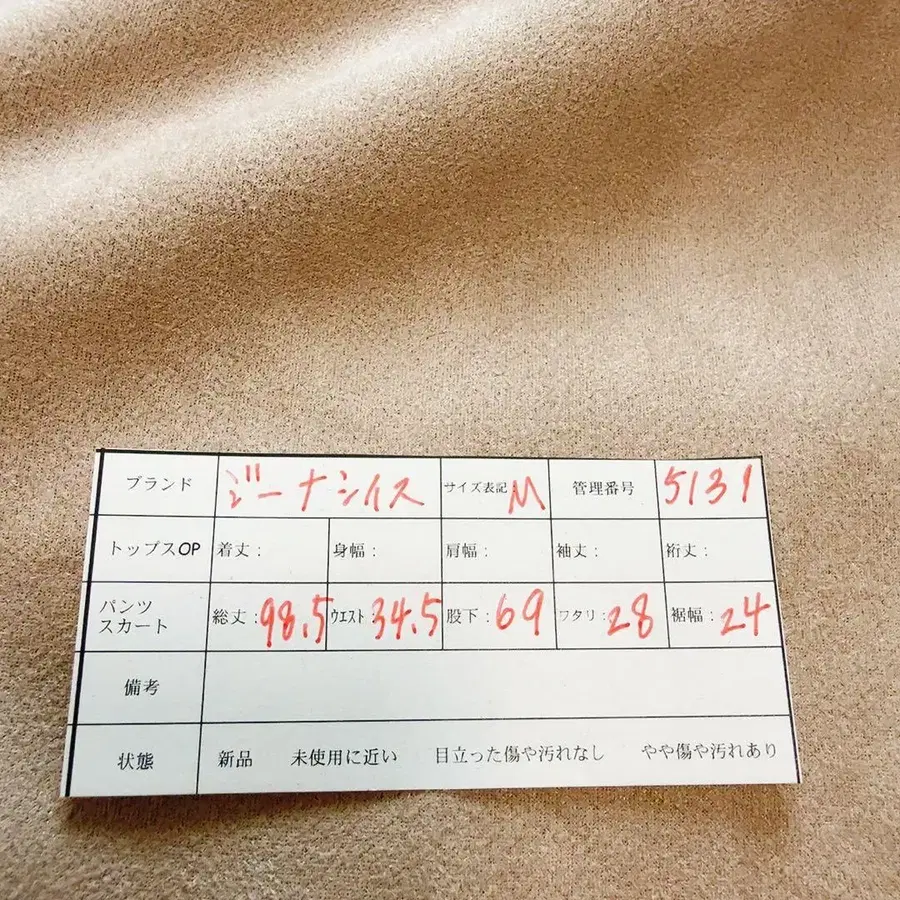 ブランド ジーナシイス サイズ表記: M 管理番号 5131
トップスOP 着丈: 身幅: 肩幅: 袖丈: 裄丈:
パンツ スカート 総丈:98.5 ウエスト:34.5 股下:69 ワタリ:28 裾幅:24
備考
状態 新品 未使用に近い 目立った傷や汚れなし やや傷や汚れあり